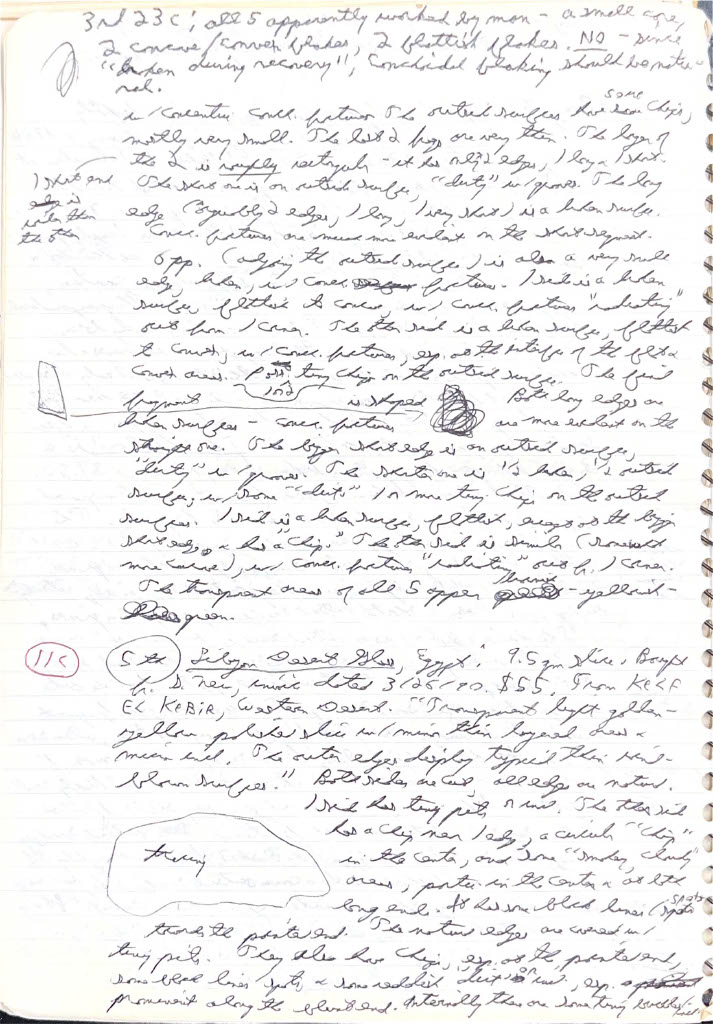 3rd 23c; all 5 apparently worked by man - a small core,
2 concave/convex flakes, 2 flattish flakes. NO - since
"broken during recovery", conchoidal flaking should be natu-
ral.
w/concentric conch. fractures. The outside surfaces have some chips,
some
mostly very small. The last 2 frags are very thin. The larger of
the 2 is roughly rectangular - it has only 2 edges, 1 long & 1 short.
1 short end
edge is
wider than
the other
The short one is an outside surface, "dirty" w/grooves. The long
edge (arguably 2 edges, 1 long, 1 very short) is a broken surface.
Conch. fractures are much more evident on the short segment.
Opp. (adjoining the outside surface) is also a very small
edge, broken, w/conch. fractures. 1 side is a broken
surface, flattish to concave, w/conch. fractures "radiating"
out from 1 corner. The other side is a broken surface, flattish
to convex, w/conch. fractures, esp. at the interface of the flat &
convex areas. Poss. 1 or 2 tiny chips on the outside surface. The final
fragment is shaped Both long edges are
broken surfaces - conch. fractures are more evident on the
straight one. The bigger short edge is an outside surface,
"dirty" w/grooves. The shorter one is ½ broken, ½ outside
surface, w/some "dirt". 1 or more tiny chips on the outside
surfaces. 1 side is a broken surface, flattish, except at the bigger
short edge, & has a "chip." The other side is similar (somewhat
more concave), w/conch. fractures "radiating" out fr. 1 corner.
The transparent areas of all 5 appear - yellowish-
green.
11c
5th Libyan Desert Glass, Egypt. 9.5 gm slice. Bought
fr. D. New, invoice dated 3/26/90. $55. From KEBF
EL KEBIR, Western Desert. "Transparent light golden-
yellow polished slice w/minor thin layered areas &
micro incl. The outer edges display typical thin wind-
blown surfaces." Both sides are cut, all edges are natural.
1 side has tiny pits or incl. The other side
has a chip near 1 edge, a circular "chip"
in the center, and some "smokey, cloudy"
tracing
areas, partic. in the center & at the
long end. It has some black lines/spots
spots
towards the pointed end. The natural edges are covered w/
tiny pits. They also have chips, esp. at the pointed end,
some black lines, spots & some reddish "dirt or incl", esp.
prominent along the blunt end. Internally there are some tiny bubbles/
incl.